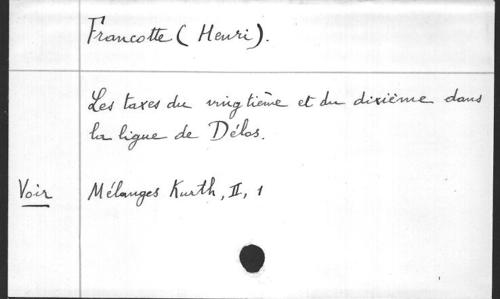 Francotte (Henri).
Les taxes du vingtième et du dixième dans
la ligue de Délos.
Voir Mélanges Kurth, II, 1